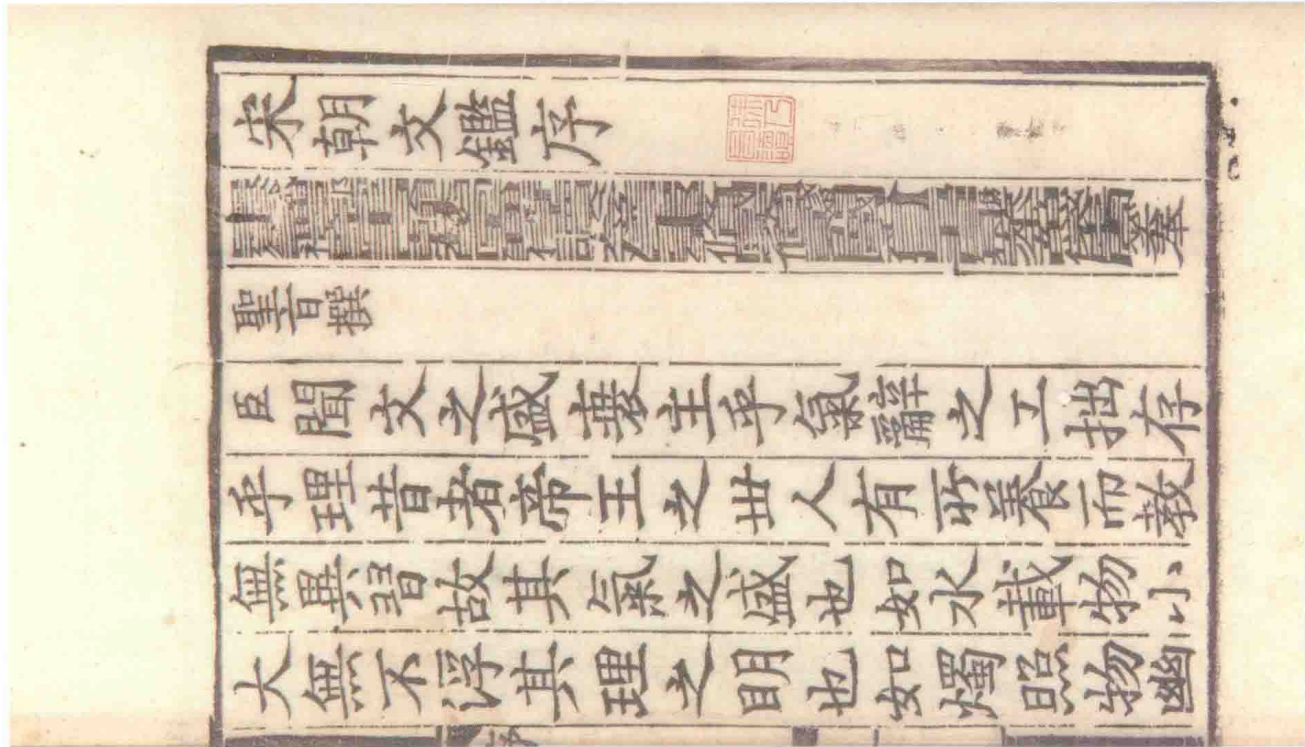 宋朝文鑑序
奉
聖旨撰
臣聞文之盛衰主乎氣辭之工拙存
乎理昔者帝王之世人有所養而教
無異習故其氣之盛也如水載物小
大無不浮其理之明也如燭照物幽